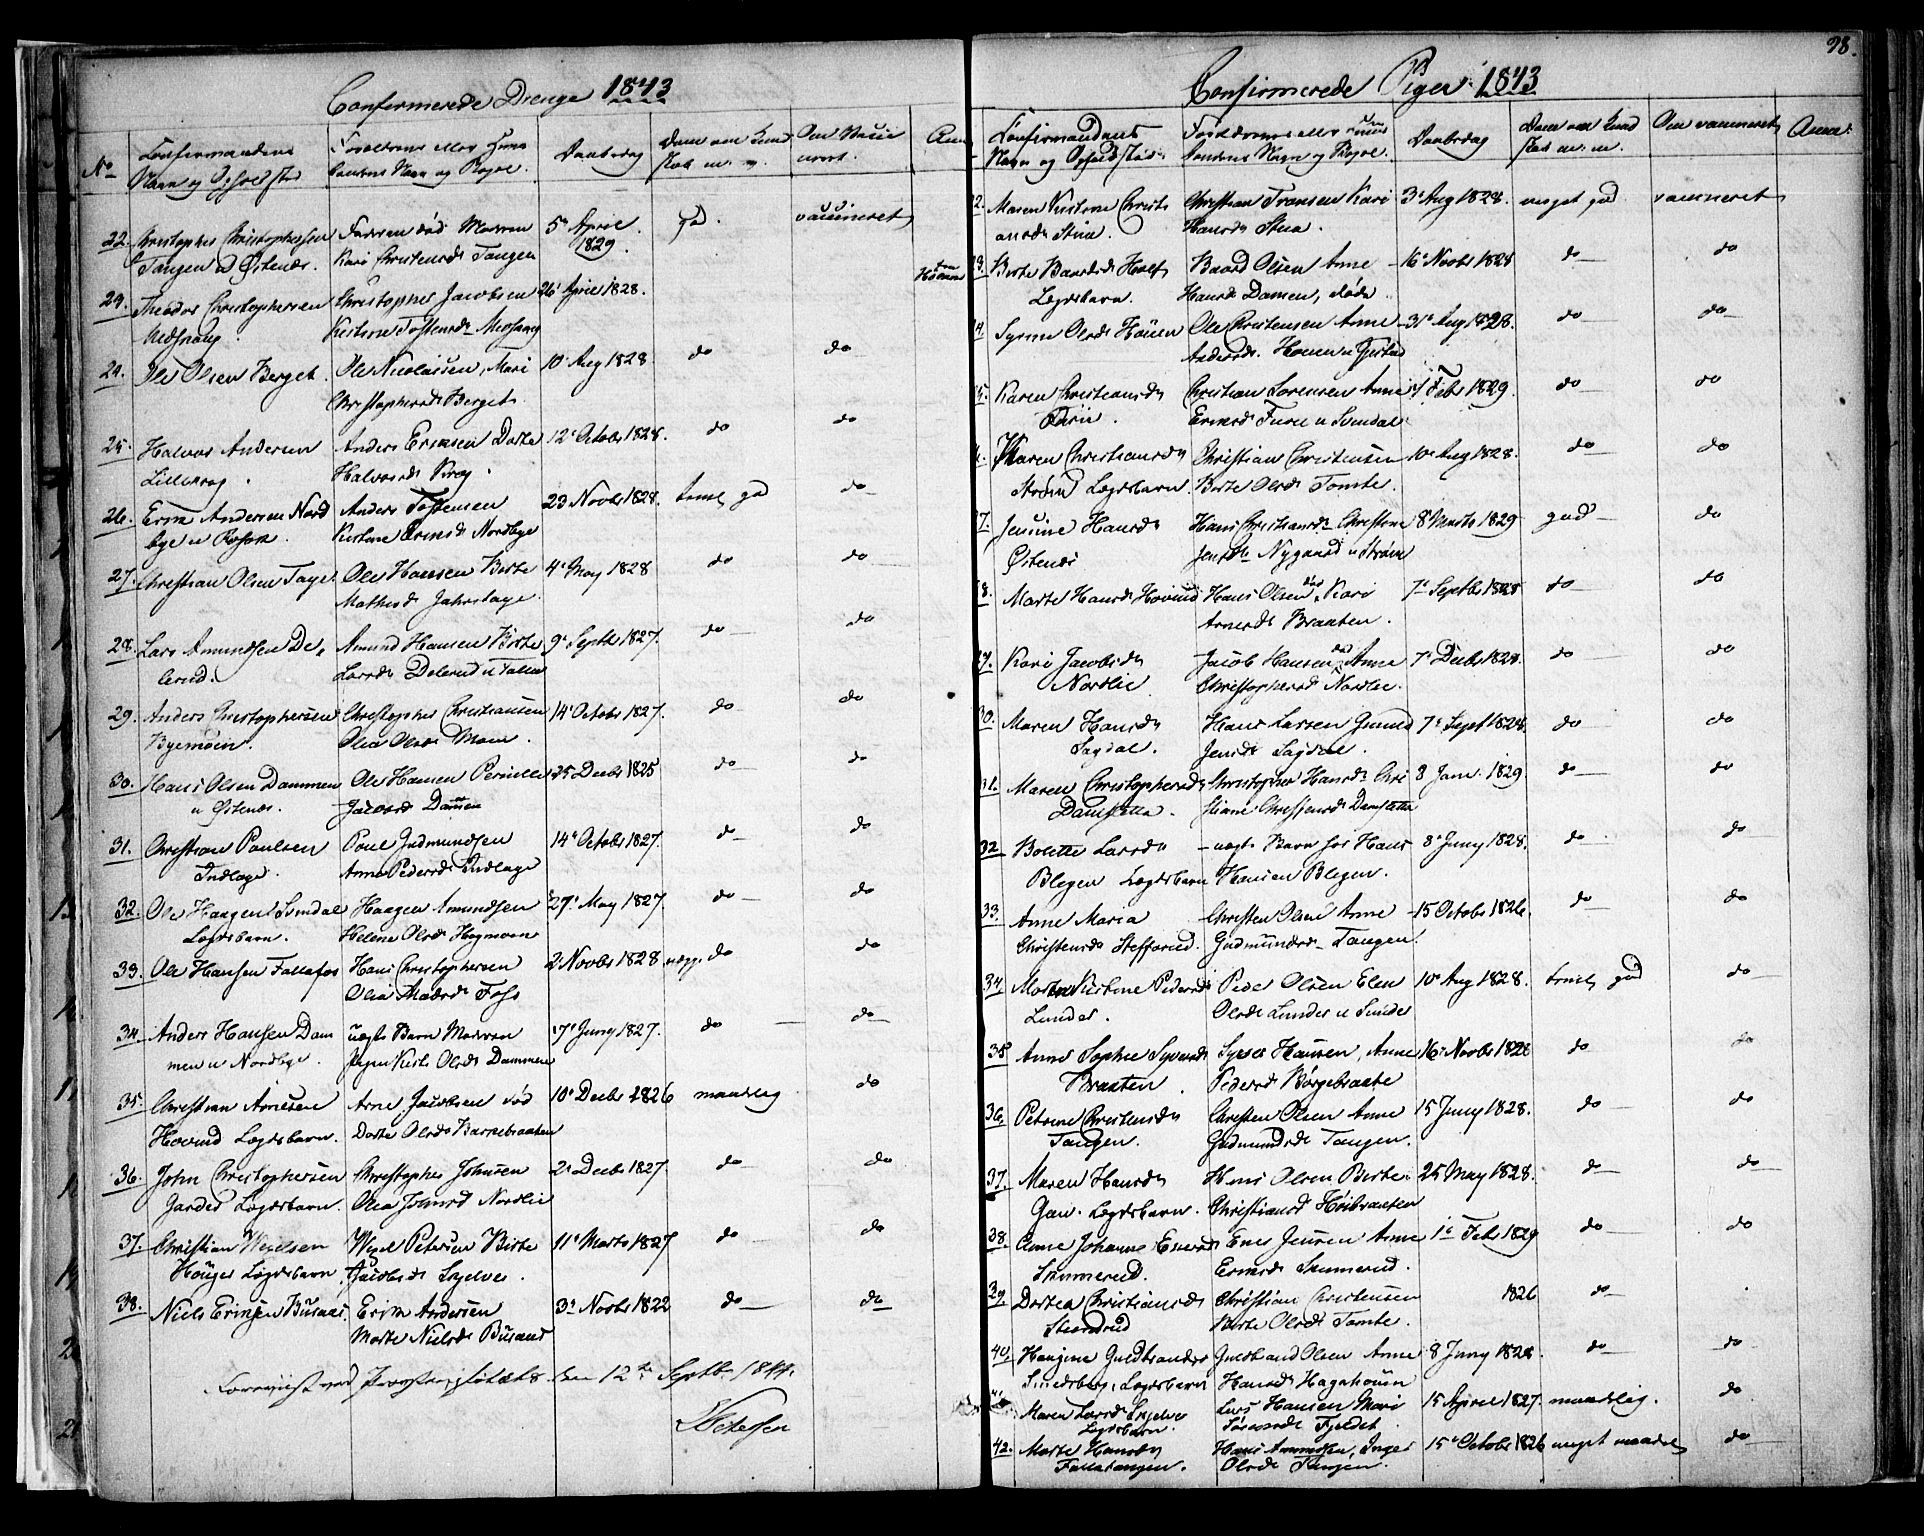 Confirmerede Drenge 1843
No
Confirmandens
Navn og Opholdsted
Forældrenes eller Huus
bondens Navn og Boepæl.
Daabsdag
Dom om Kund
skab m. m.
Om Vacci
neret.
Anm
22. Christopher Christophersen
Tangen Østenæs.
Faderen død Moderen
Kari Christensd. Tangen
5 April
1829.
god.
vaccineret
23. Theodor Christophersen
Christopher Jacobsen
Kirstine Tostensd.
26 April 1828.
24. Ole Olsen Berget.
Ole Nicolaisen, Mari
Christophersd. Berget.
10 Aug 1828
do
do
25. Halvor Andersen
Lillekrog.
Anders Ericksen Dorte
Halvorsd. Krog.
12 Octobr 1828.
do
do
26. Erik Andersen Nord
bye
Anders Tostensen
Kirstine Nordbye
23 Novbr 1828.
temel. god
do
27. Christian Olsen Taye.
Ole Hansen Birte
Mathisd.
4 May 1828
do
do
28. Lars Amundsen De
lerud.
Amund Hansen Birte
Larsd. Delerud
9 Septbr 1827.
do
do
29. Anders Christophersen
Byemoen.
Christopher Christiansen
Olea Olsd. Moen.
14 Octobr 1827.
do
do
30. Hans Olsen Dammen
u Østenæs.
Ole Hansen Pernille
Jacobsd. Dammen
25 Decbr 1825
do
do
31. Christian Paulsen
Indlage.
Poul Gudmundsen
Anne Pedersd. Indlage
14 Octobr 1827.
do
do
32. Ole Haagens. Svindal
Lægdsbarn.
Haagen Amundsen
Helene Olsd. Hagmoen
27 May 1827.
do
do
33. Ole Hansen Fallafos
Hans Christophersen
Olea Madsd. Foss
2 Novbr 1828.
do
do
34. Anders Hansen Dam
men u Nordbye.
uægte Barn Moderen
Pigen Kirst. Olsd. Dammen
17 Juny 1827.
do
do
35. Christian Arnesen
Hovind Lægdsbarn.
Arne Jacobsen død
Dorte Olsd. Barkebraaten
10 Decbr 1826
maadelig
do
36. John Christophersen
Garder Lægdsbarn.
Christopher Johnsen
Olea Johnsd. Nordlie
2 Decbr 1827.
do
do
37. Christian Wexelsen
Houger Lægdsbarn.
Wexel Petersen Birte
Jacobsd. Lyelver.
11 Marts 1827
do
do
38. Niels Ericksen Busaas.
Erik Andersen
Marte Nielsd. Busaas
3 Novbr 1822
do
do
Foreviist ved den 12te Septbr. 1844.
98.
Confirmerede Piger 1843
Confirmandens
Navn og Opholdsted
Forældrenes eller Huus
bondens Navn og Boepæl.
Daabsdag
Dom om Kund
skab m. m.
Om vaccineret
Anm.
22. Maren Kirstine Christi
ansd. Stua.
Christian Fransen Kari
Hansd. Stua.
3 Aug 1828.
meget god
vaccineret
23. Birte Baardsd.
Lægdsbarn.
Baard Olsen Anne
Hansd. Damen, døde.
16 Novbr 1828
do
do
24. Olsd. Houen
Ole Christensen Anne
Andersd. Houen
31 Aug 1828.
do
do
25. Karen Christiansd.
Christian Lorensen Anne
Ericksd. Svendal
Febr 1829.
do
do
26. Karen Christiansd.
Strøm Lægdsbarn.
Christian Christensen
Birte Olsd. Tomte.
10 Aug 1828.
do
do
27. Jensine Hansd.
Østenæs
Hans Christiansd. Christine
Jensd. Nygaard u Strøm
8 Marts 1829
god
do
28. Marte Hansd. Hovind
Hans Olsen død, Kari
Arnesd. Braaten.
7 Septbr 1828
do
do
29. Kari Jacobsd.
Nordlie
Jacob Hansen død Anne
Christophersd. Nordlie.
7 Decbr 1828.
do
do
30. Maren Hansd.
Sagdal.
Hans Larsen Gunild
Jensd. Sagdal.
7 Sept 1828.
do
do
31. Maren Christophersd.
Damsletta.
Christopher Hansd. Chri
stiane Christensd. Damsletta
8 Janr. 1829
do
do
32 Bolette Larsd.
Blegen Lægdsbarn
uægte Barn hos Hans
Hansen Blegen.
8 Juny 1828.
do
do
33. Anne Maria
Christensd. Stefferud.
Christen Olsen Anne
Gudmundsd. Tangen.
15 Octobr 1826.
do
do
34. Marte Kirstine Pedersd.
Lunder.
Peder Olsen Elen
Olsd. Lunder
10 Aug 1828.
temel. god
do
35 Anne Sophie Syversd.
Braaten.
Syver Hansen, Anne
Pedersd. Børgebraate
16 Novbr 1828
do
do
36. Petrine Christensd.
Tangen.
Christen Olsen Anne
Gudmundsd. Tangen.
15 Juny 1828.
do
do
37. Maren Hansd.
Lægdsbarn.
Hans Olsen Birte
Christiansd. Høibraaten
25 May 1828.
do
do
38. Anne Johanne Enersd.
Skinnerud.
Ener Jensen Anne
Ericksd. Skinnerud.
1 Febr 1829
do
do
39. Dortea Christiansd.
Christian Christensen
Birte Olsd. Tomte.
1826
do
40. Hansine Guldbrandsd.
Smedsberg. Lægdsbarn
Guldbrand Olsen Anne
Hansd. Hagahouen
8 Juny 1828
do
do
41. Maren Larsd. Lyelver
Lægdsbarn.
Lars Hansen Mari
Fjeldet.
15 April 1827.
maadelig.
do
42. Marte Hansd.
Fallatangen.
Hans Amundsen, Inger
Olsd. Tangen.
15 Octobr 1826
meget maadel.
do